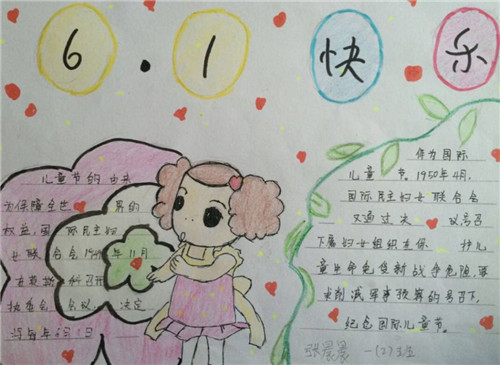 6.1快乐
儿童节的由来
为保障全世 男的
权益,国 际民主妇
女联合会1949年11月
在莫斯科召开
执委会会议,决定
作为国际
儿童节。1950年4月,
国际民主妇女联合会
又通过 号召
下属妇女组织在保 护儿
童生命免受新战争危险
点削减军事预算的号召下,
纪念国际儿童节。
张晨晨 一(2)